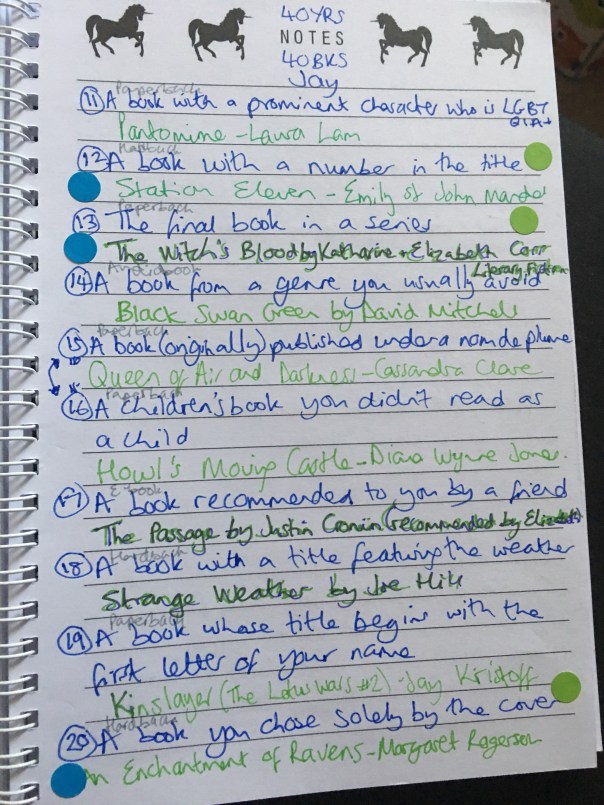 40YRS
NOTES
40BKS
Jay
Paperback
11 A book with a prominent character who is LGBT
QIA+
Pantomime - Laura Lam
Hardback
12 A book with a number in the title
Station Eleven - Emily St John Mandel
Paperback
13 The final book in a series
The Witch's Blood by Katharine + Elizabeth Corr
Audiobook
Literary Fiction
14 A book from a genre you usually avoid
Black Swan Green by David Mitchell
Paperback
15 A book (originally) published under a nom de plume
Queen of Air and Darkness - Cassandra Clare
Paperback
16 A children's book you didn't read as
a child
Howl's Moving Castle - Diana Wynne Jones.
E-book
17 A book recommended to you by a friend
The Passage by Justin Cronin (recommended by Elizabeth)
Hardback
18 A book with a title featuring the weather
Strange Weather by Joe Hill
Paperback
19 A book whose title begins with the
first letter of your name
Kinslayer (The Lotus Wars #2) - Jay Kristoff
Hardback
20 A book you chose solely by the cover
An Enchantment of Ravens - Margaret Rogerson